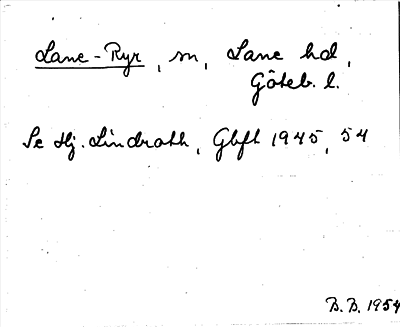 Lane-Ryr, sn, Lane hd,
Göteb. l.
Se Hj. Lindroth, Gbft 1945, 54
B. B. 1954